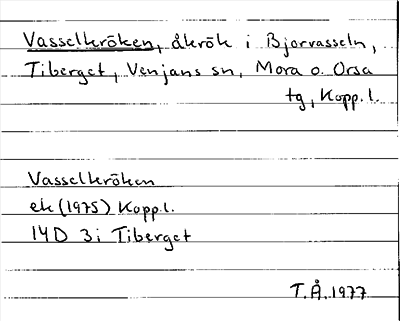 Vasselkröken, åkrök i Bjorvasseln,
Tiberget, Venjans sn, Mora o. Orsa
tg, Kopp. l.
Vasselkröken
ek (1975) Kopp.l.
14D 3i Tiberget
T.Å. 1977